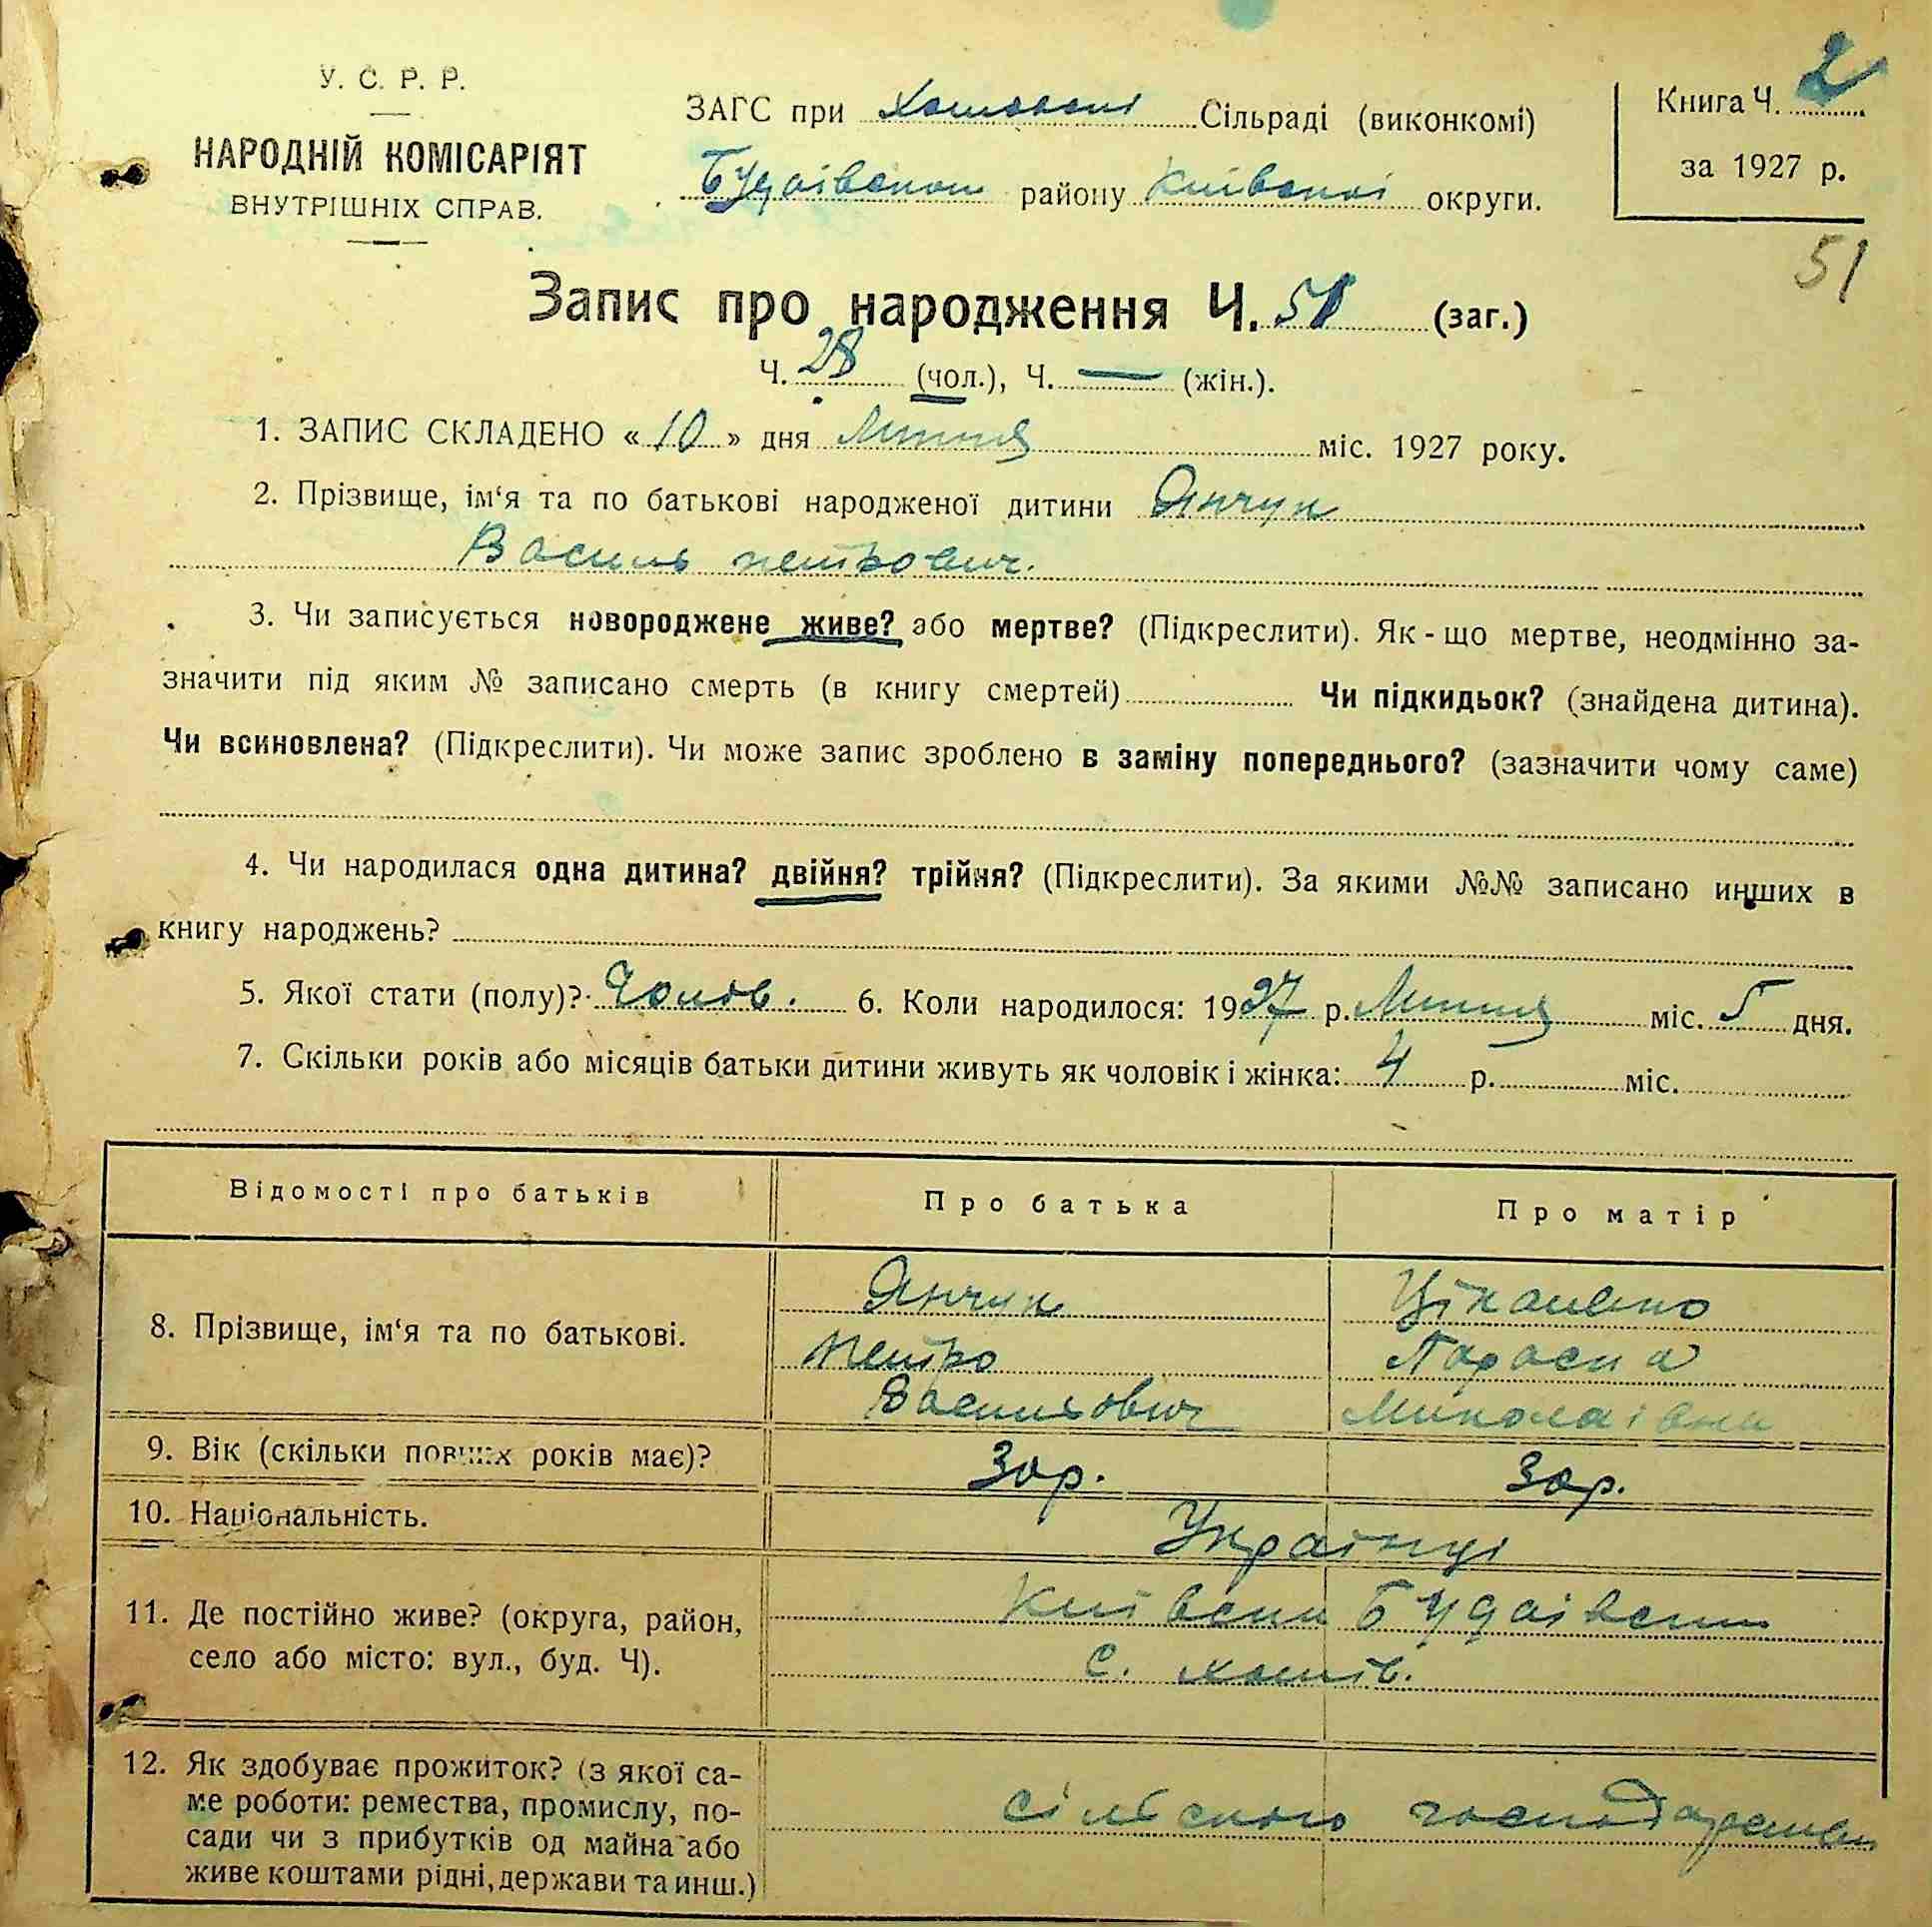 У. С. Р. Р.
НАРОДНІЙ КОМІСАРІЯТ
ВНУТРІШНІХ СПРАВ.
ЗАГС при Хотовскі Сільраді (виконкомі)
Будаівского району Київскоі округи.
Книга Ч. 2
за 1927 р.
51
Запис про народження Ч. 51 (заг.)
Ч. 28 (чол.), Ч. — (жін.).
1. ЗАПИС СКЛАДЕНО «10» дня Липня міс. 1927 року.
2. Прізвище, ім‘я та по батькові народженої дитини Янчук
Василь петрович.
3. Чи записується новороджене живе? або мертве? (Підкреслити). Як-що мертве, неодмінно за-
значити під яким № записано смерть (в книгу смертей) Чи підкидьок? (знайдена дитина).
Чи всиновлена? (Підкреслити). Чи може запис зроблено в заміну попереднього? (зазначити чому саме)
4. Чи народилася одна дитина? двійня? трійня? (Підкреслити). За якими №№ записано инших в
книгу народжень?
5. Якої стати (полу)? Чолов. 6. Коли народилося: 1927 р. Липня міс. 5 дня.
7. Скільки років або місяців батьки дитини живуть як чоловік і жінка: 4 р. міс.
Відомості про батьків Про батька Про матір
8. Прізвище, ім‘я та по батькові.
Янчук
Петро
Васильович
Параска
Миколаівна
9. Вік (скільки повних років має)? 30р. 30р.
10. Національність. Українці
11. Де постійно живе? (округа, район,
село або місто: вул., буд. Ч).
Київски Будаівски
с. хотів.
12. Як здобуває прожиток? (з якої са-
ме роботи: ремества, промислу, по-
сади чи з прибутків од майна або
живе коштами рідні, держави та инш.)
сільского господарства